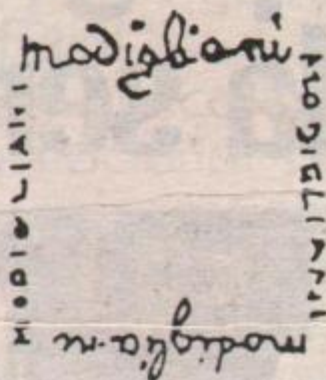 modigliani
MODIGLIANI
modiglia.ni
MODIGLIANI